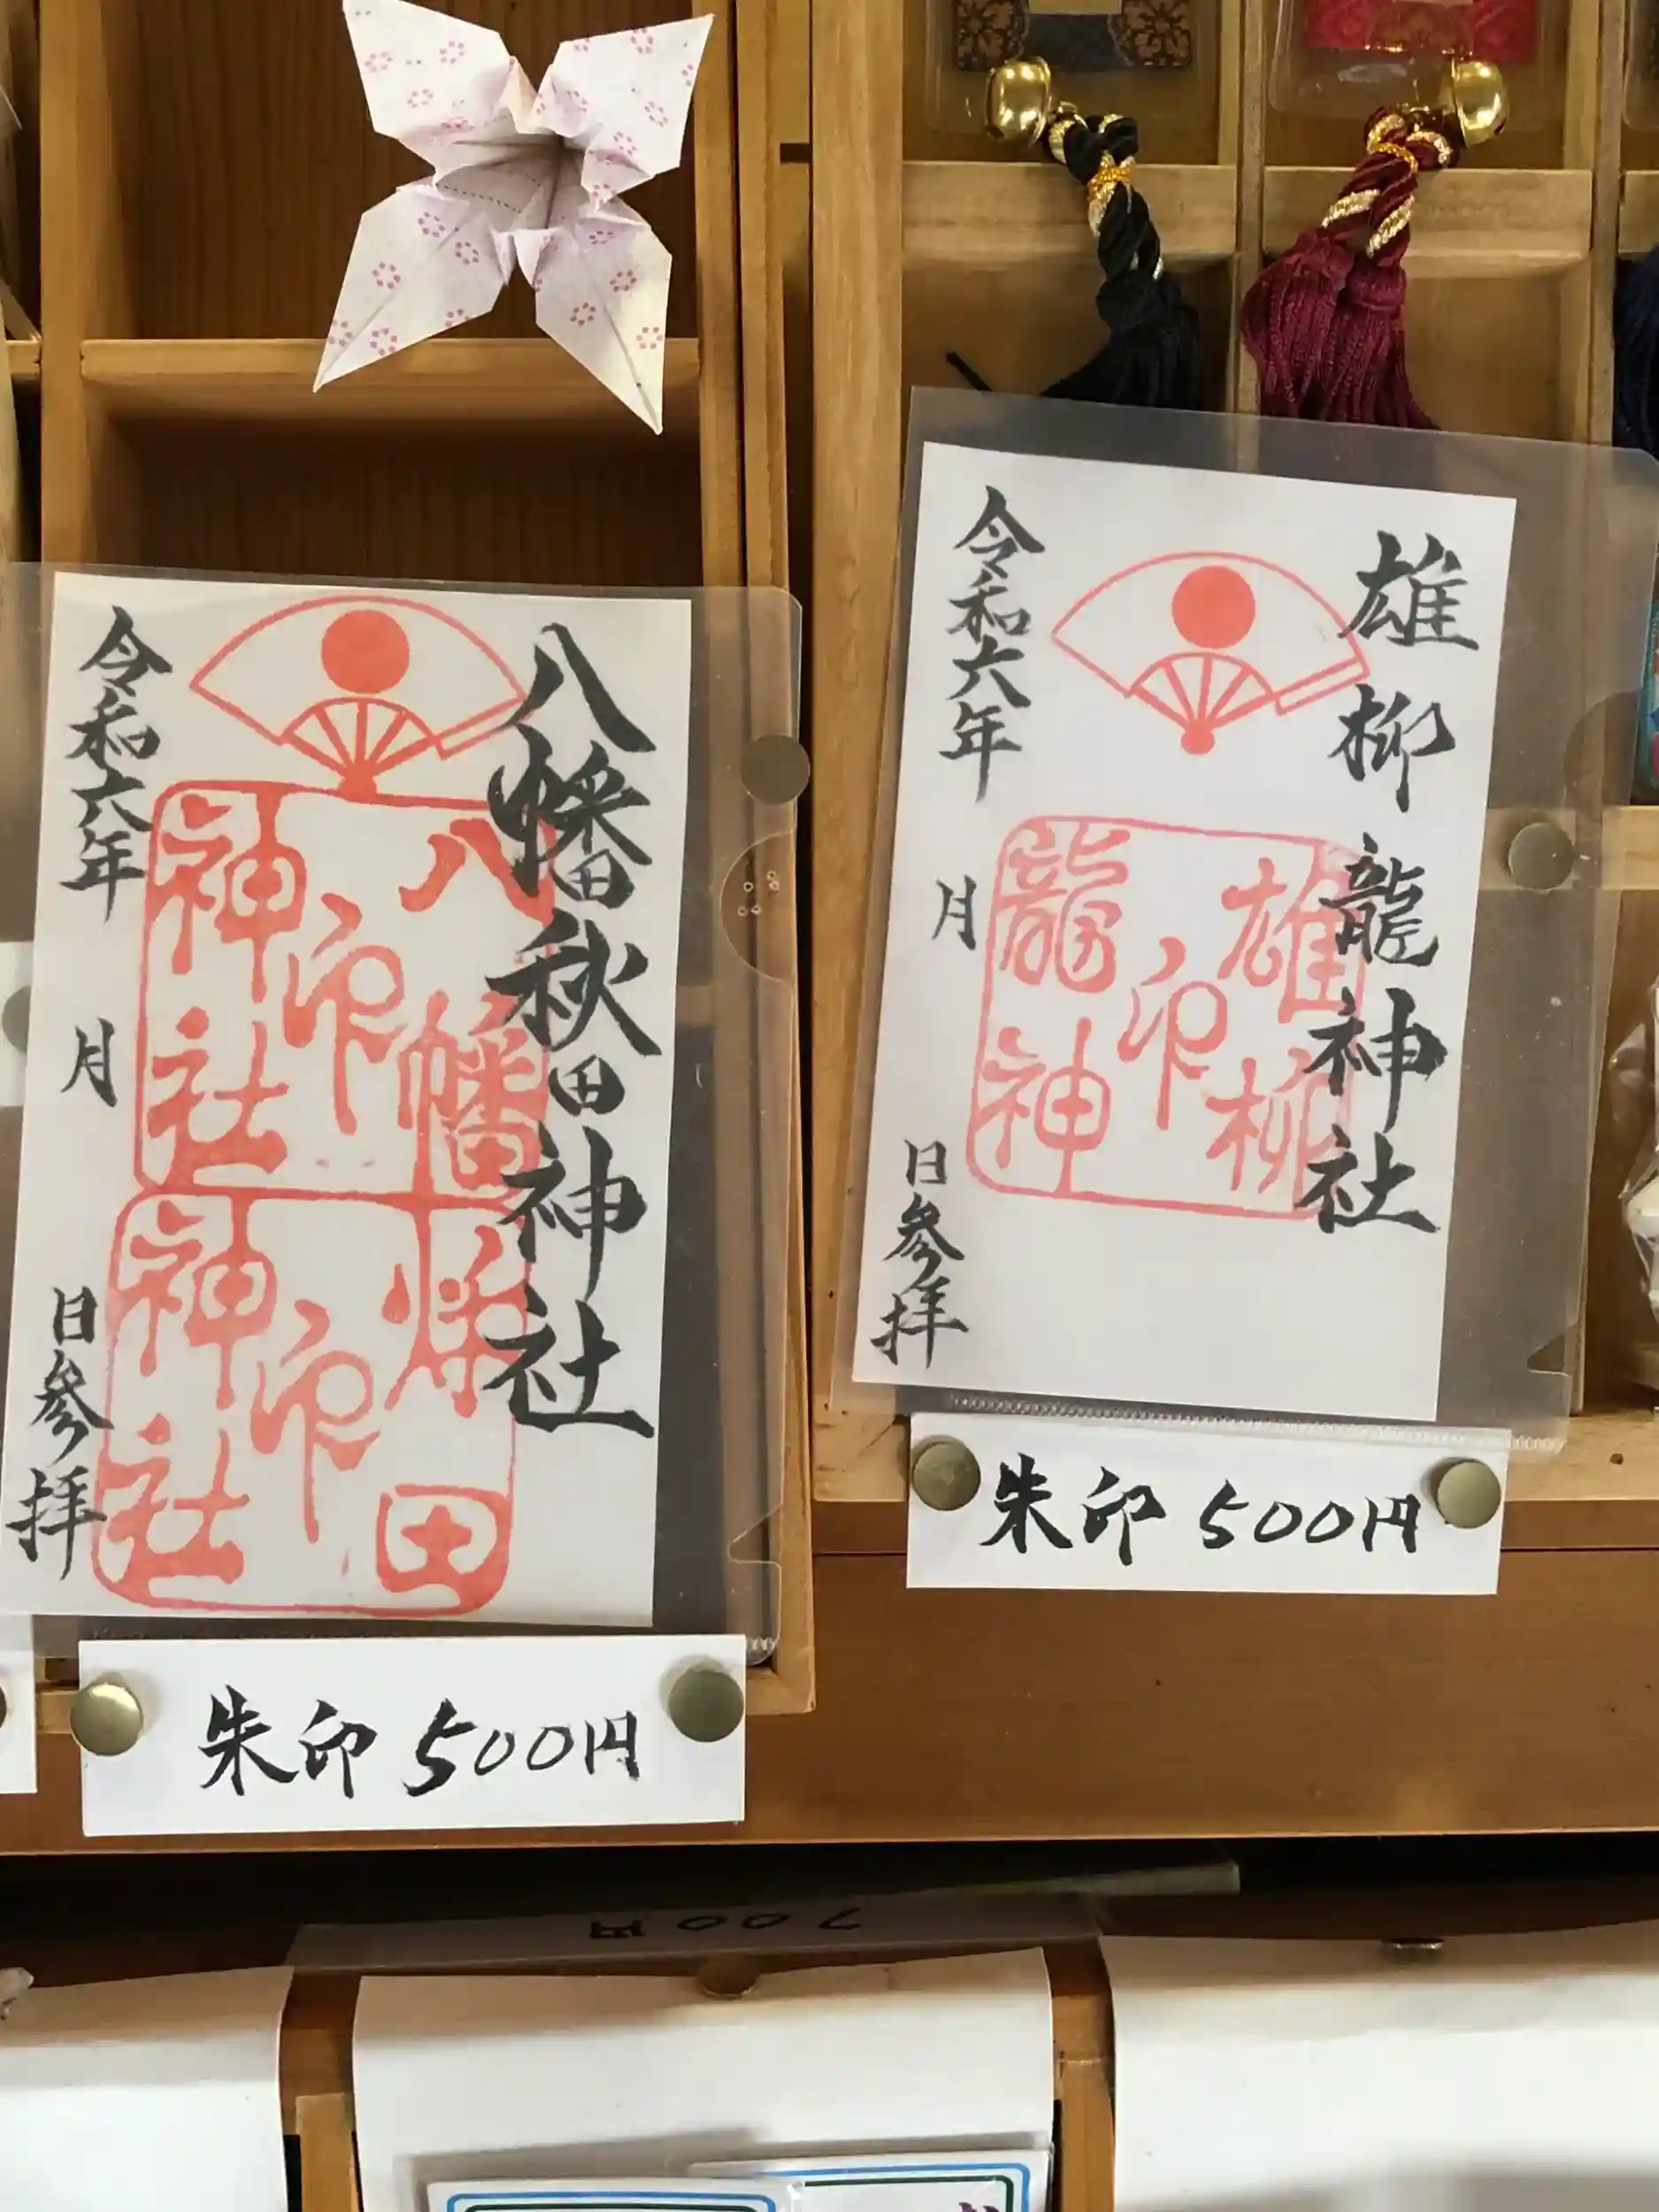 八幡秋田神社
八幡
印
神社
秋田
印
神社
令和六年 月 日参拝
朱印 500円
雄柳龍神社
雄柳
印
龍神
令和六年 月 日参拝
朱印 500円
700円